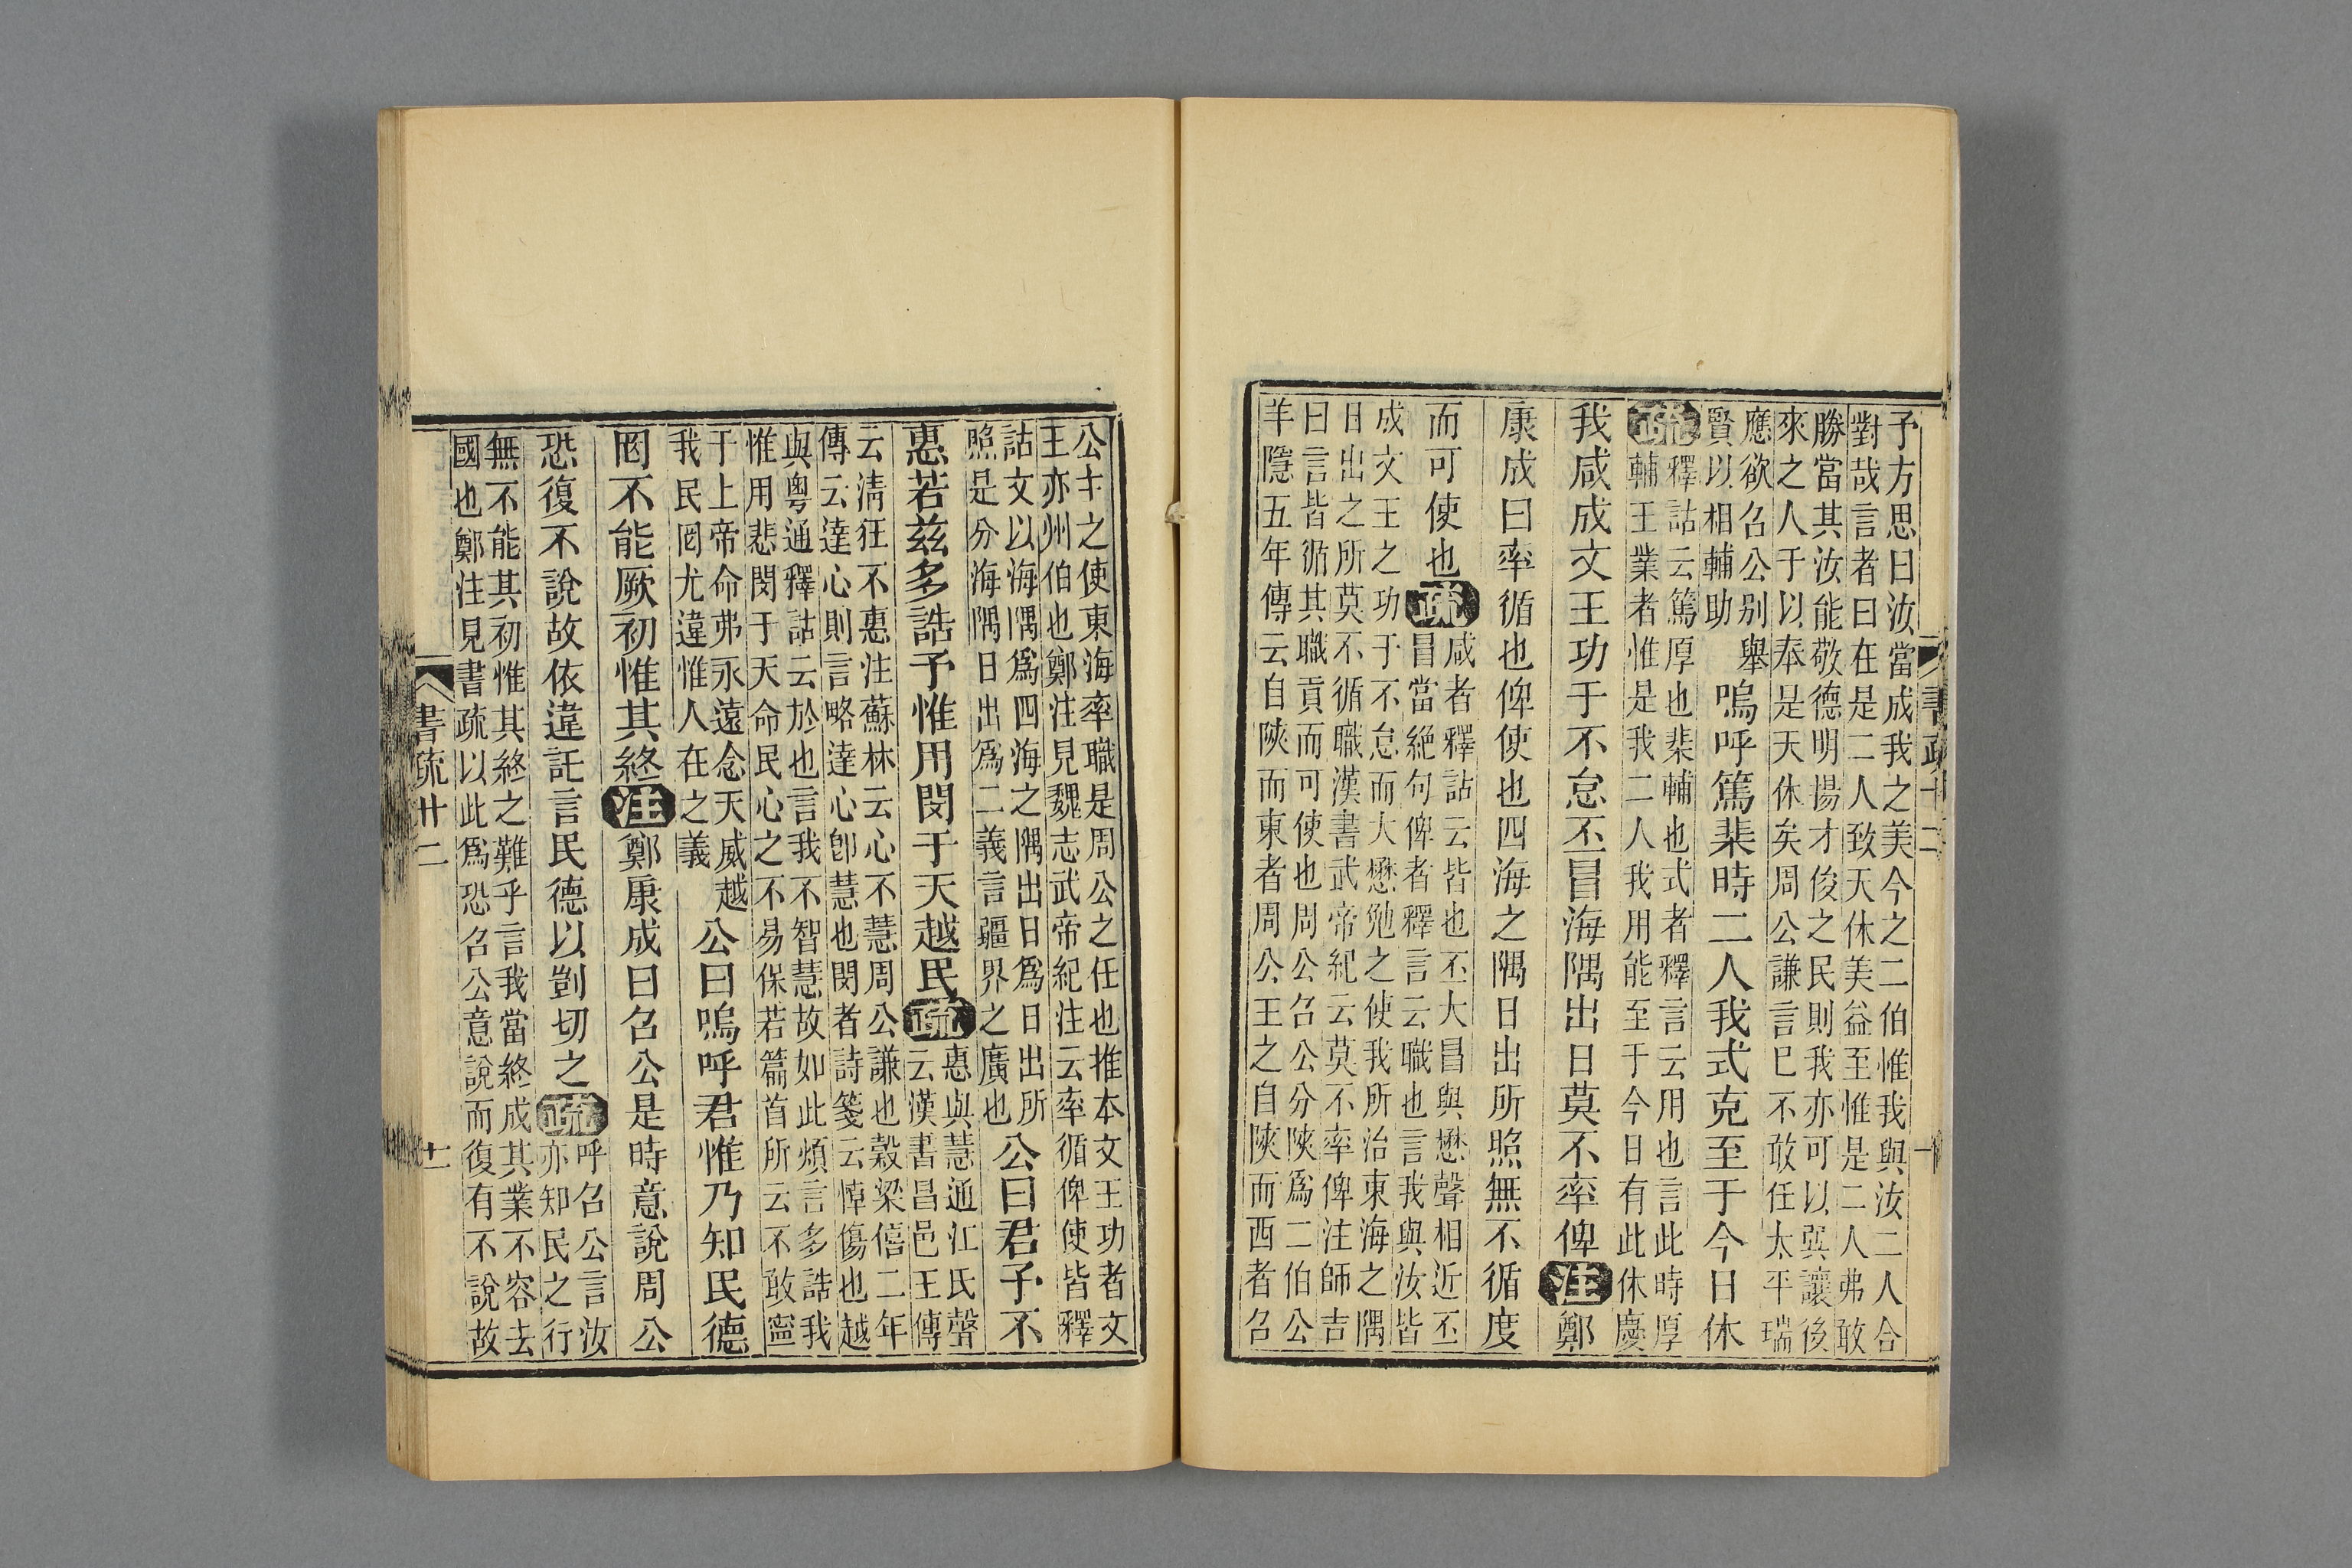 予方思曰汝當成我之美今之二伯惟我與汝二人合
對哉言者曰在是二人致天休美益至惟是二人弗敢
勝當其汝能敬德明揚才俊之民則我亦可以巽讓後
來之人于以奉是天休矣周公謙言已不敢任太平瑞
應欲召公別舉
賢以相輔助
嗚呼篤棐時二人我式克至于今日休
疏
釋詁云篤厚也棐輔也式者釋言云用也言此時厚
輔王業者惟是我二人我用能至于今日有此休慶
我咸成文王功于不怠丕冒海隅出日莫不率俾注鄭
康成曰率循也俾使也四海之隅日出所照無不循度
而可使也疏
咸者釋詁云皆也丕大昌與懋聲相近丕
冒當絕句俾者釋言云職也言我與汝皆
成文王之功于不怠而大懋勉之使我所治東海之隅
日出之所莫不循職漢書武帝紀云莫不率俾注師吉
曰言皆循其職貢而可使也周公召公分陝爲二伯公
羊隱五年傳云自陝而東者周公王之自陝而西者召
公之使東海率職是周公之任也推本文王功者文
王亦州伯也鄭注見魏志武帝紀注云率循俾使皆釋
詁文以海隅爲四海之隅出日爲日出所
照是分海隅日出爲二義言疆界之廣也
公曰君予不
惠若茲多誥予惟用閔于天越民疏
惠與慧通江氏聲
云漢書昌邑王傳
云清狂不惠注蘇林云心不慧周公謙也穀梁僖二年
傳云達心則言略達心卽慧也閔者詩箋云悼傷也越
與粵通釋詁云於也言我不智慧故如此煩言多誥我
惟用悲閔于天命民心之不易保若篇首所云不敢寧
于上帝命弗永遠念天威越
我民罔尤違惟人在之義
公曰嗚呼君惟乃知民德
罔不能厥初惟其終注鄭康成曰召公是時意說周公
恐復不說故依違託言民德以剴切之疏
呼召公言汝
亦知民之行
無不能其初惟其終之難乎言我當終成其業不容去
國也鄭注見書疏以此爲恐召公意說而復有不說故
書疏廿二 十一